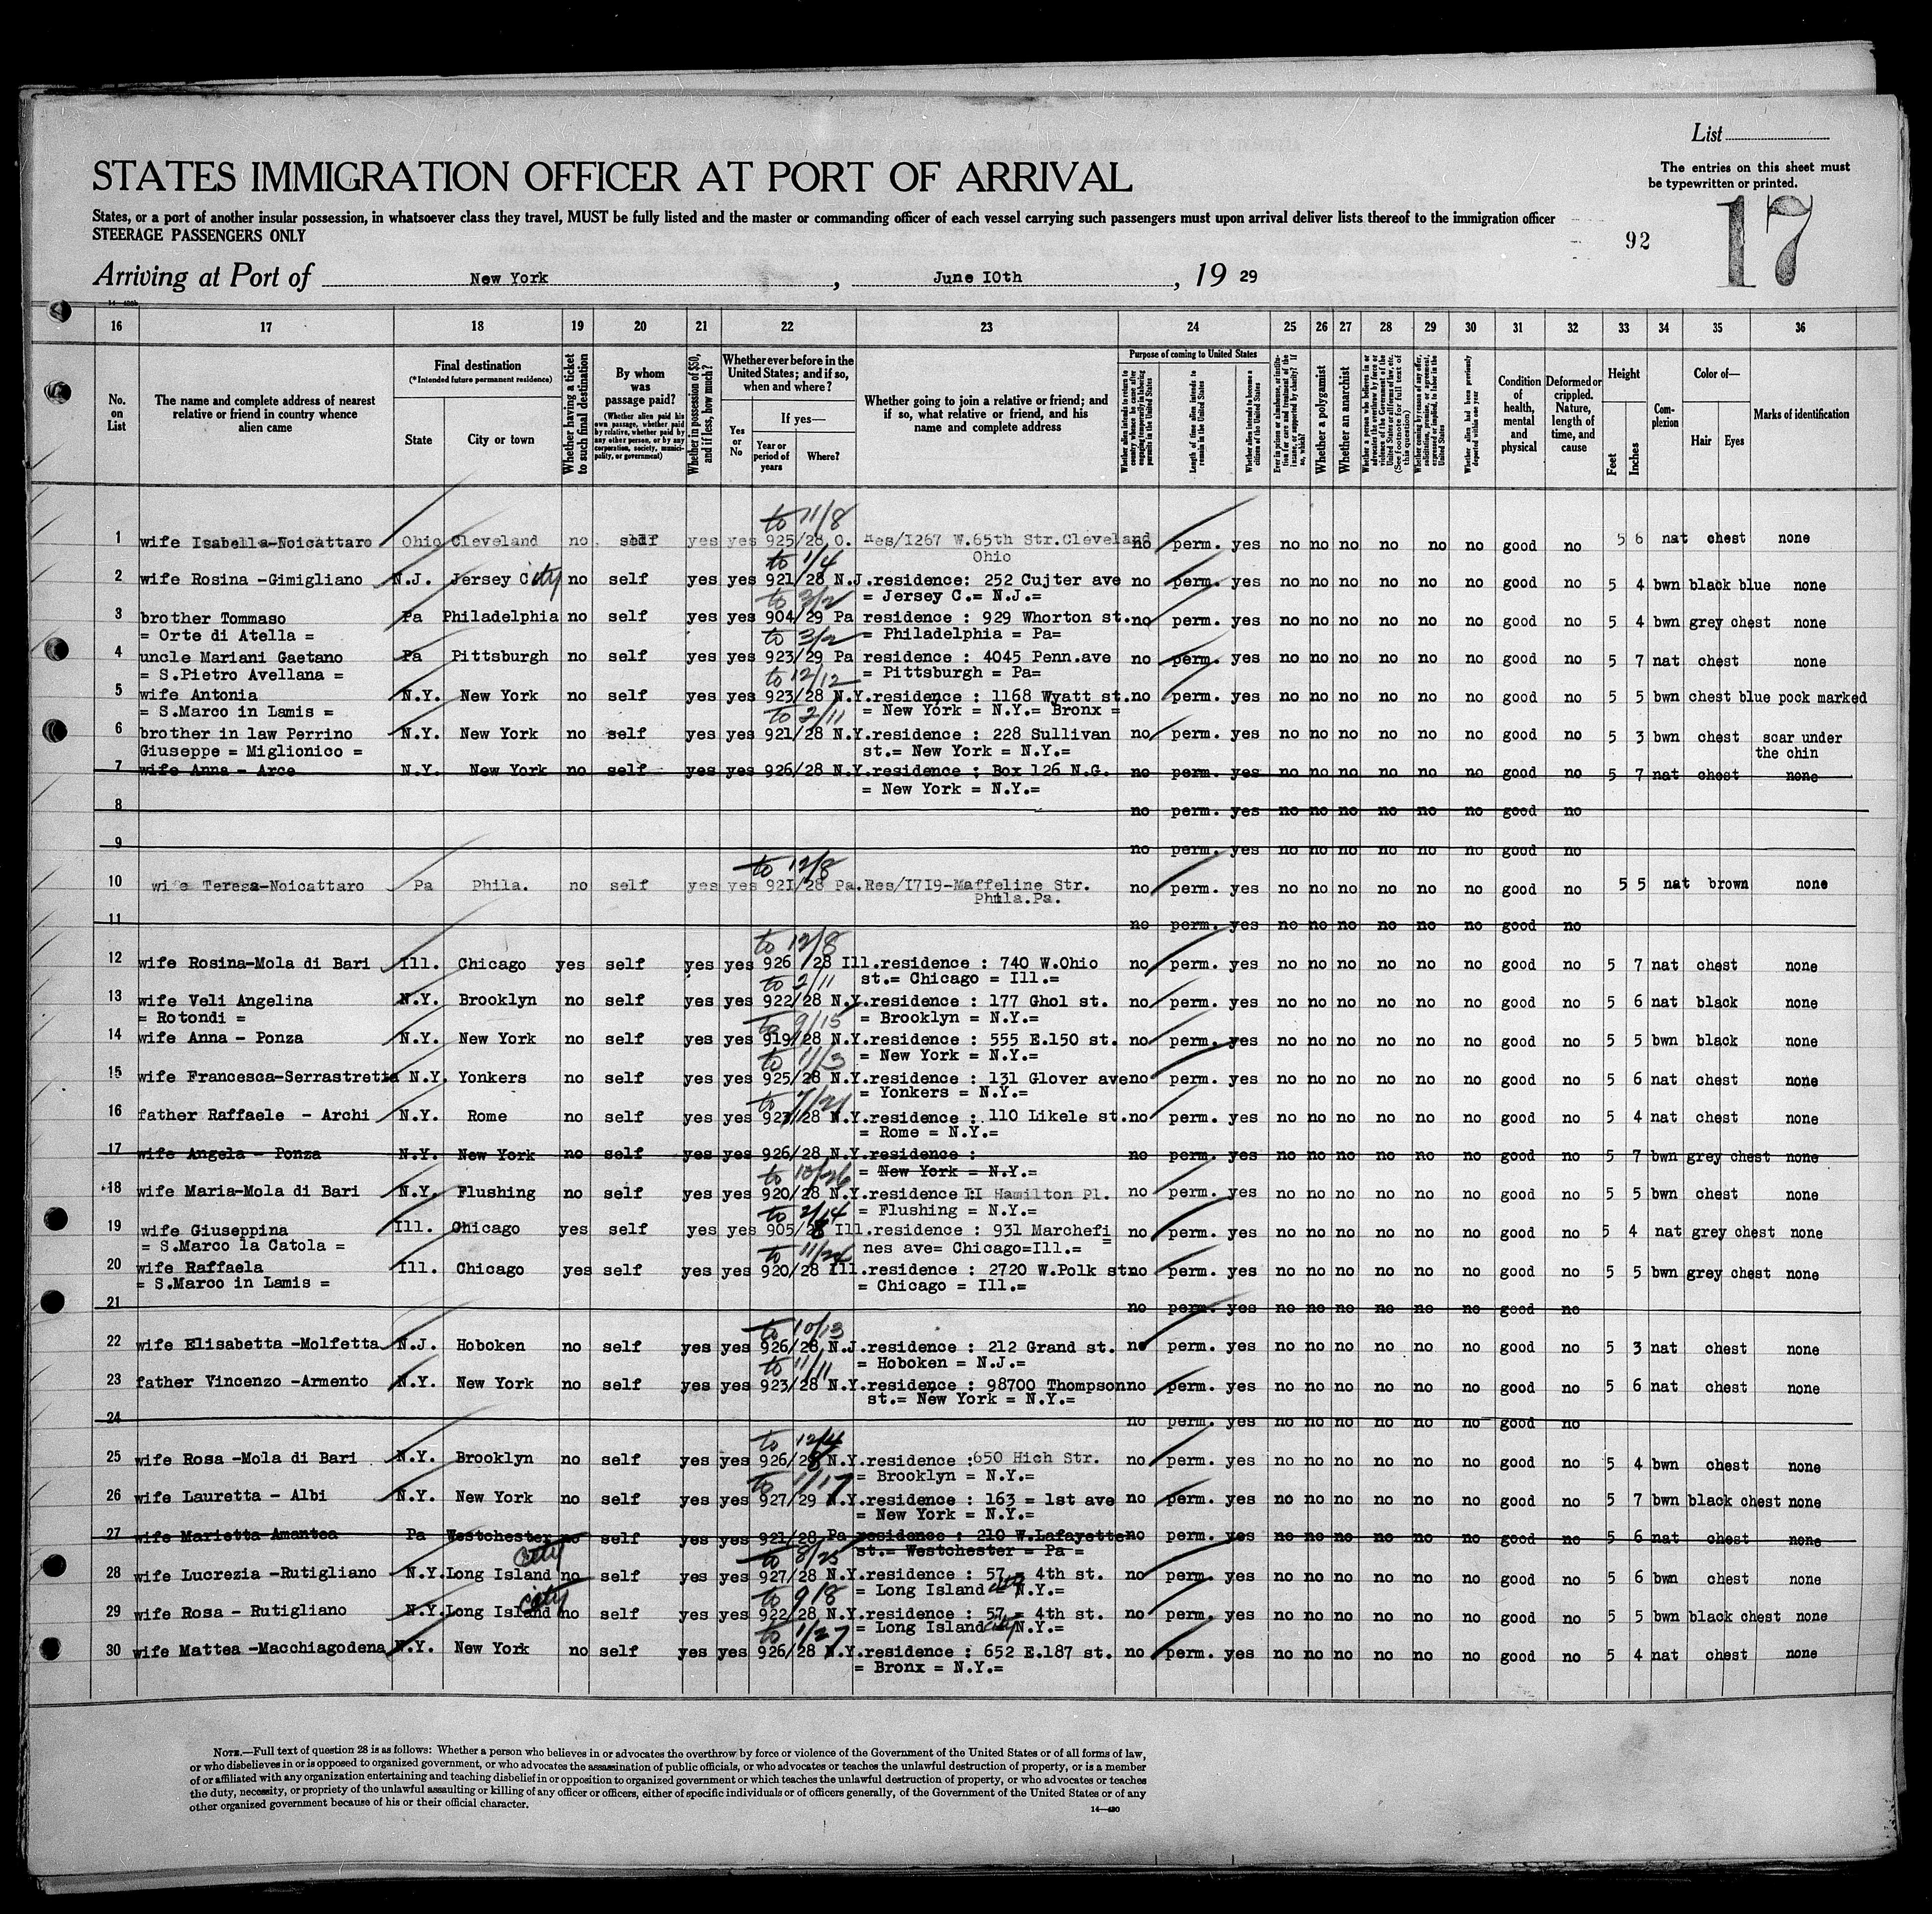 List
The entries on this sheet must
be typewritten or printed.
STATES IMMIGRATION OFFICER AT PORT OF ARRIVAL
States, or a port of another insular possession, in whatsoever class they travel, MUST be fully listed and the master or commanding officer of each vessel carrying such passengers must upon arrival deliver lists thereof to the immigration officer
STEERAGE PASSENGERS ONLY
92 17
Arriving at Port of New York , June 10th , 19 29
16 17 18 19 20 21 22 23 24 25 26 27 28 29 30 31 32 33 34 35 36
No. on List
The name and complete address of nearest relative or friend in country whence alien came
Final destination
(*Intended future permanent residence)
State
City or town
Whether having a ticket to such final destination
By whom was passage paid?
(Whether alien paid his own passage, whether paid by relative, whether paid by any other person, or by any corporation, society, municipality, or government)
Whether in possession of $50, and if less, how much?
Whether ever before in the United States; and if so, when and where?
Yes or No
If yes—
Year or period of years
Where?
Whether going to join a relative or friend; and if so, what relative or friend, and his name and complete address
Purpose of coming to United States
Length of time alien intends to remain in the United States
Whether alien intends to become a citizen of the United States
Whether a polygamist
Whether an anarchist
Whether alien had been previously deported within one year
Condition of health, mental and physical
Deformed or crippled. Nature, length of time, and cause
Height
Feet
Inches
Complexion
Color of—
Hair
Eyes
Marks of identification
to 11/8
1 wife Isabella-Noicattaro Ohio Cleveland no self yes yes 925/28 O. Res/1267 W.65th Str.Cleveland no perm. yes no no no no no no good no 5 6 nat chest none
Ohio
to 1/4
2 wife Rosina -Gimigliano N.J. Jersey City no self yes yes 921/28 N.J.residence: 252 Cujter ave no perm. yes no no no no no no good no 5 4 bwn black blue none
= Jersey C.= N.J.=
to 3/2
3 brother Tommaso Pa Philadelphia no self yes yes 904/29 Pa residence : 929 Whorton st. no perm. yes no no no no no no good no 5 4 bwn grey chest none
= Orte di Atella = = Philadelphia = Pa=
to 3/2
4 uncle Mariani Gaetano Pa Pittsburgh no self yes yes 923/29 Pa residence : 4045 Penn.ave no perm. yes no no no no no no good no 5 7 nat chest none
= S.Pietro Avellana = = Pittsburgh = Pa=
to 12/12
5 wife Antonia N.Y. New York no self yes yes 923/28 N.Y.residence : 1168 Wyatt st. no perm. yes no no no no no no good no 5 5 bwn chest blue pock marked
= S.Marco in Lamis = = New York = N.Y.= Bronx =
to 2/11
6 brother in law Perrino N.Y. New York no self yes yes 921/28 N.Y.residence : 228 Sullivan no perm. yes no no no no no no good no 5 3 bwn chest scar under
Giuseppe = Miglionico = st.= New York = N.Y.= the chin
7 wife Anna - Arce N.Y. New York no self yes yes 926/28 N.Y.residence : Box 126 N.G. no perm. yes no no no no no no good no 5 7 nat chest none
= New York = N.Y.=
8 no perm. yes no no no no no no good no
9 no perm. yes no no no no no no good no
to 12/8
10 wife Teresa-Noicattaro Pa Phila. no self yes yes 921/28 Pa.Res/1719-Maffeline Str. no perm. yes no no no no no no good no 5 5 nat brown none
Phila.Pa.
11 no perm. yes no no no no no no good no
to 12/8
12 wife Rosina-Mola di Bari Ill. Chicago yes self yes yes 926/28 Ill.residence : 740 W.Ohio no perm. yes no no no no no no good no 5 7 nat chest none
st.= Chicago = Ill.=
to 2/11
13 wife Veli Angelina N.Y. Brooklyn no self yes yes 922/28 N.Y.residence : 177 Ghol st. no perm. yes no no no no no no good no 5 6 nat black none
= Rotondi = = Brooklyn = N.Y.=
to 9/15
14 wife Anna - Ponza N.Y. New York no self yes yes 919/28 N.Y.residence : 555 E.150 st. no perm. yes no no no no no no good no 5 5 bwn black none
= New York = N.Y.=
to 11/3
15 wife Francesca-Serrastretta N.Y. Yonkers no self yes yes 925/28 N.Y.residence : 131 Glover ave no perm. yes no no no no no no good no 5 6 nat chest none
= Yonkers = N.Y.=
to 7/21
16 father Raffaele - Archi N.Y. Rome no self yes yes 927/28 N.Y.residence : 110 Likele st. no perm. yes no no no no no no good no 5 4 nat chest none
= Rome = N.Y.=
17 wife Angela - Ponza N.Y. New York no self yes yes 926/28 N.Y.residence : no perm. yes no no no no no no good no 5 7 bwn grey chest none
= New York = N.Y.=
to 10/26
18 wife Maria-Mola di Bari N.Y. Flushing no self yes yes 920/28 N.Y.residence 11 Hamilton Pl. no perm. yes no no no no no no good no 5 5 bwn chest none
= Flushing = N.Y.=
to 2/14
19 wife Giuseppina Ill. Chicago yes self yes yes 905/28 Ill.residence : 931 Marchefi no perm. yes no no no no no no good no 5 4 nat grey chest none
= S.Marco la Catola = nes ave= Chicago=Ill.=
to 11/24
20 wife Raffaela Ill. Chicago yes self yes yes 920/28 Ill.residence : 2720 W.Polk st. no perm. yes no no no no no no good no 5 5 bwn grey chest none
= S.Marco in Lamis = = Chicago = Ill.=
21 no perm. yes no no no no no no good no
to 10/13
22 wife Elisabetta -Molfetta N.J. Hoboken no self yes yes 926/28 N.J.residence : 212 Grand st. no perm. yes no no no no no no good no 5 3 nat chest none
= Hoboken = N.J.=
to 11/11
23 father Vincenzo -Armento N.Y. New York no self yes yes 923/28 N.Y.residence : 98700 Thompson no perm. yes no no no no no no good no 5 6 nat chest none
st.= New York = N.Y.=
24 no perm. yes no no no no no no good no
to 12/4
25 wife Rosa -Mola di Bari N.Y. Brooklyn no self yes yes 926/28 N.Y.residence :650 Hich Str. no perm. yes no no no no no no good no 5 4 bwn chest none
= Brooklyn = N.Y.=
to 1/17
26 wife Lauretta - Albi N.Y. New York no self yes yes 927/29 N.Y.residence : 163 = 1st ave no perm. yes no no no no no no good no 5 7 bwn black chest none
= New York = N.Y.=
27 wife Marietta Amantea Pa Westchester no self yes yes 921/28 Pa residence : 210 W.Lafayette no perm. yes no no no no no no good no 5 6 nat chest none
st.= Westchester = Pa =
to 8/25
28 wife Lucrezia -Rutigliano N.Y. Long Island city no self yes yes 927/28 N.Y.residence : 57 = 4th st. no perm. yes no no no no no no good no 5 6 bwn chest none
= Long Island city N.Y.=
to 9/8
29 wife Rosa - Rutigliano N.Y. Long Island city no self yes yes 922/28 N.Y.residence : 57 = 4th st. no perm. yes no no no no no no good no 5 5 bwn black chest none
= Long Island city N.Y.=
to 1/27
30 wife Mattea -Macchiagodena N.Y. New York no self yes yes 926/28 N.Y.residence : 652 E.187 st. no perm. yes no no no no no no good no 5 4 nat chest none
= Bronx = N.Y.=
NOTE.—Full text of question 28 is as follows: Whether a person who believes in or advocates the overthrow by force or violence of the Government of the United States or of all forms of law,
or who disbelieves in or is opposed to organized government, or who advocates the assassination of public officials, or who advocates or teaches the unlawful destruction of property, or is a member
of or affiliated with any organization entertaining and teaching disbelief in or opposition to organized government or which teaches the unlawful destruction of property, or who advocates or teaches
the duty, necessity, or propriety of the unlawful assaulting or killing of any officer or officers, either of specific individuals or of officers generally, of the Government of the United States or of any
other organized government because of his or their official character.
14—430